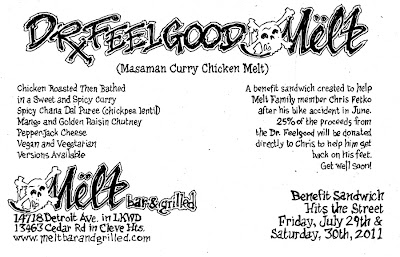 DR. FEELGOOD Mëlt
(Masaman Curry Chicken Melt)
Chicken Roasted Then Bathed
in a Sweet and Spicy Curry
Spicy Chana Dal Puree (chickpea lentil)
Mango and Golden Raisin Chutney
PepperJack Cheese
Vegan and Vegetarian
Versions Available
A benefit sandwich created to help
Melt Family member Chris Fetko
after his bike accident in June.
25% of the proceeds from
the Dr. Feelgood will be donated
directly to Chris to help him get
back on his feet.
Get well soon!
Mëlt
Bar & grilled
14718 Detroit Ave. in LKWD
13463 Cedar Rd in Cleve Hts.
www.meltbarandgrilled.com
Benefit Sandwich
Hits the Street
Friday, July 29th &
Saturday, 30th, 2011